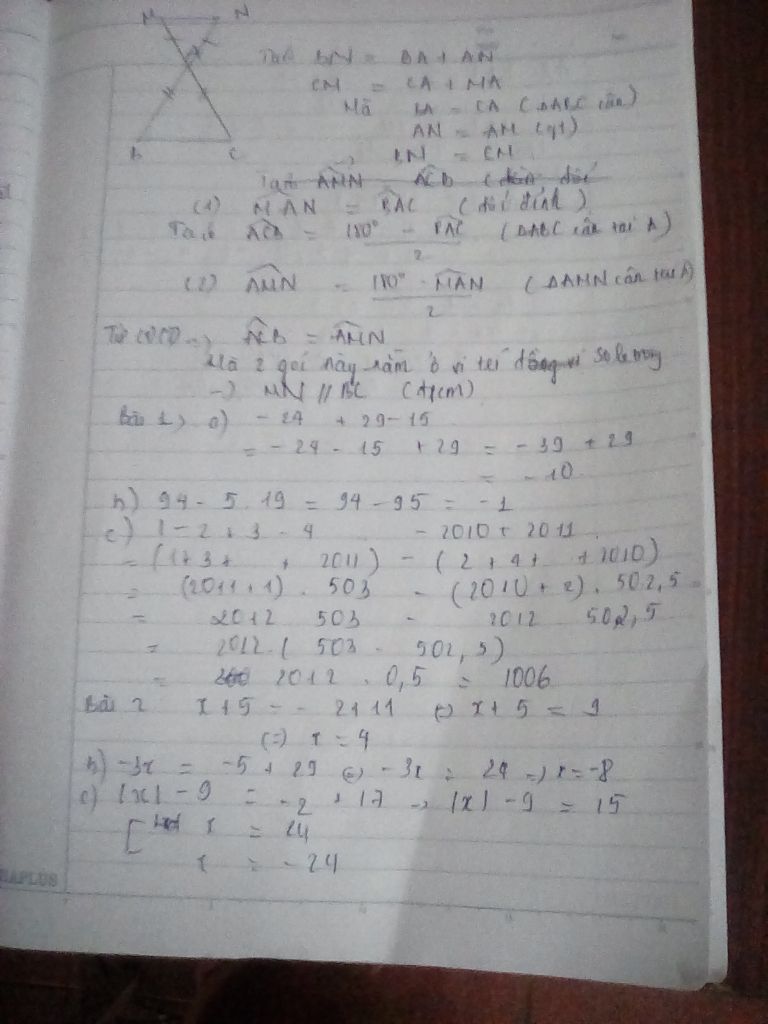 M N
A
B C
Ta có BN = BA + AN
CM = CA + MA
Mà BA = CA (ΔABC cân)
AN = AM (gt)
→ BN = CM
Ta có AMN ACB
(1) MAN = BAC (đối đỉnh)
Ta có ACB = 180° - BAC / 2 (ΔABC cân tại A)
(2) AMN = 180° - MAN / 2 (ΔAMN cân tại A)
Từ (1)(2) → ACB = AMN
Mà 2 gói này nằm ở vị trí so le trong
→ MN // BC (đpcm)
Bài 1, a) - 24 + 29 - 15
= - 24 - 15 + 29 = - 39 + 29
= - 10
b) 94 - 5 . 19 = 94 - 95 = -1
c) 1 - 2 + 3 - 4 - 2010 + 2011
= (1 + 3 + + 2011) - (2 + 4 + + 2010)
= (2011 + 1) . 503 - (2010 + 2) . 502,5 =
= 2012 503 - 2012 502,5
= 2012 . ( 503 - 502,5)
= 2012 . 0,5 = 1006
Bài 2 x + 5 = - 2 + 11 (=) x + 5 = 9
(=) x = 4
b) -3x = -5 + 29 (=) -3x = 24 => x = -8
c) |x| - 9 = -2 + 17 → |x| - 9 = 15
[ x = 24
x = - 24
RAPLUS